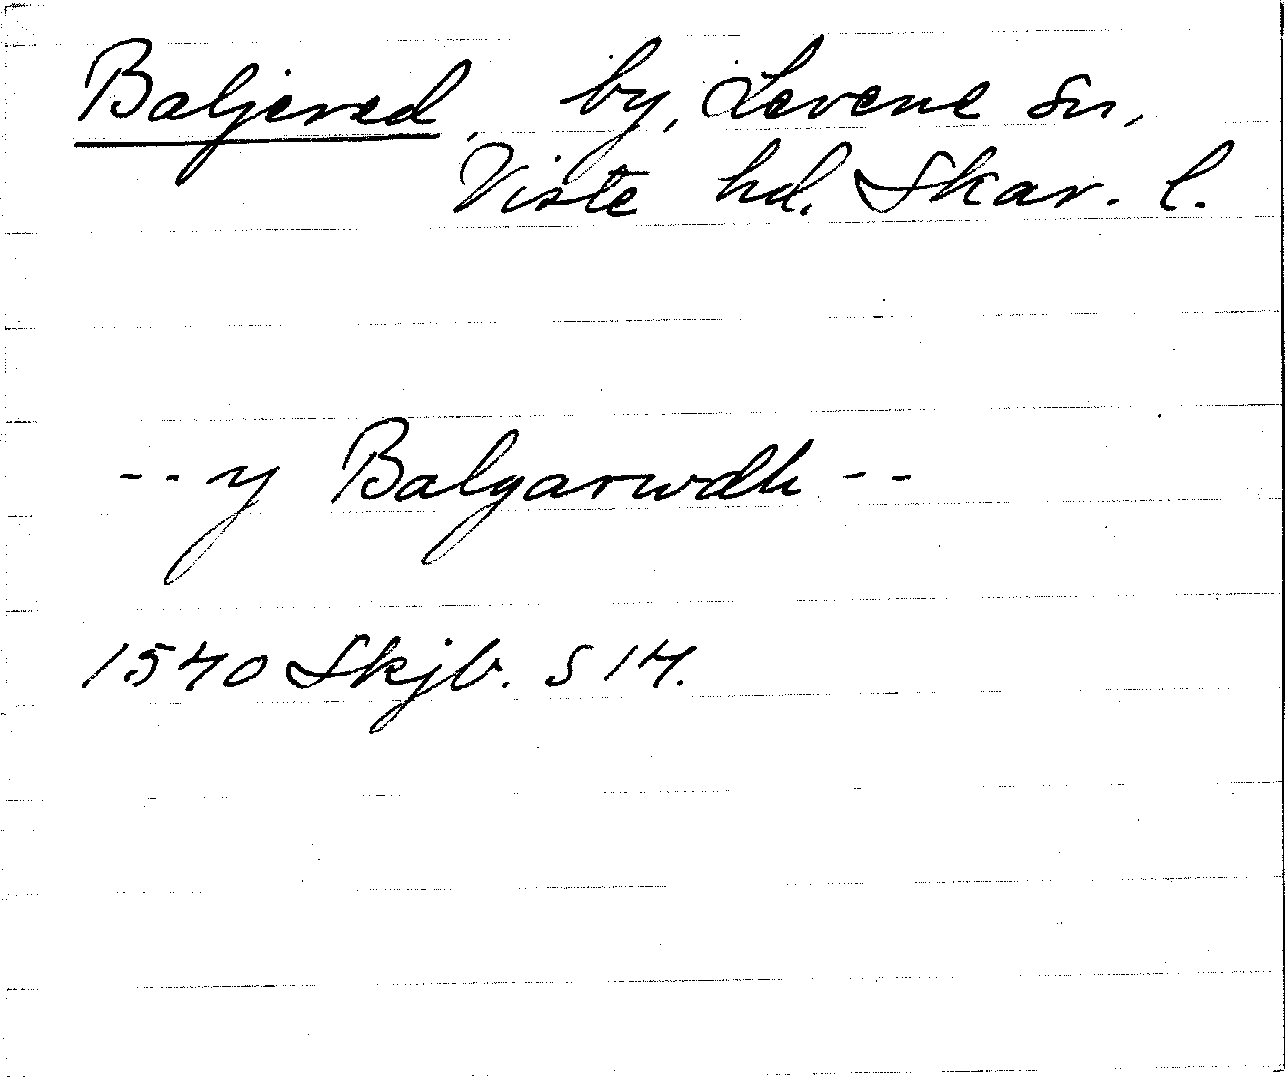 Baljered, by, Levene sn,
Viste hd. Skar. l.
-- y Balgarwdh --
1540 Skjb. S 14.